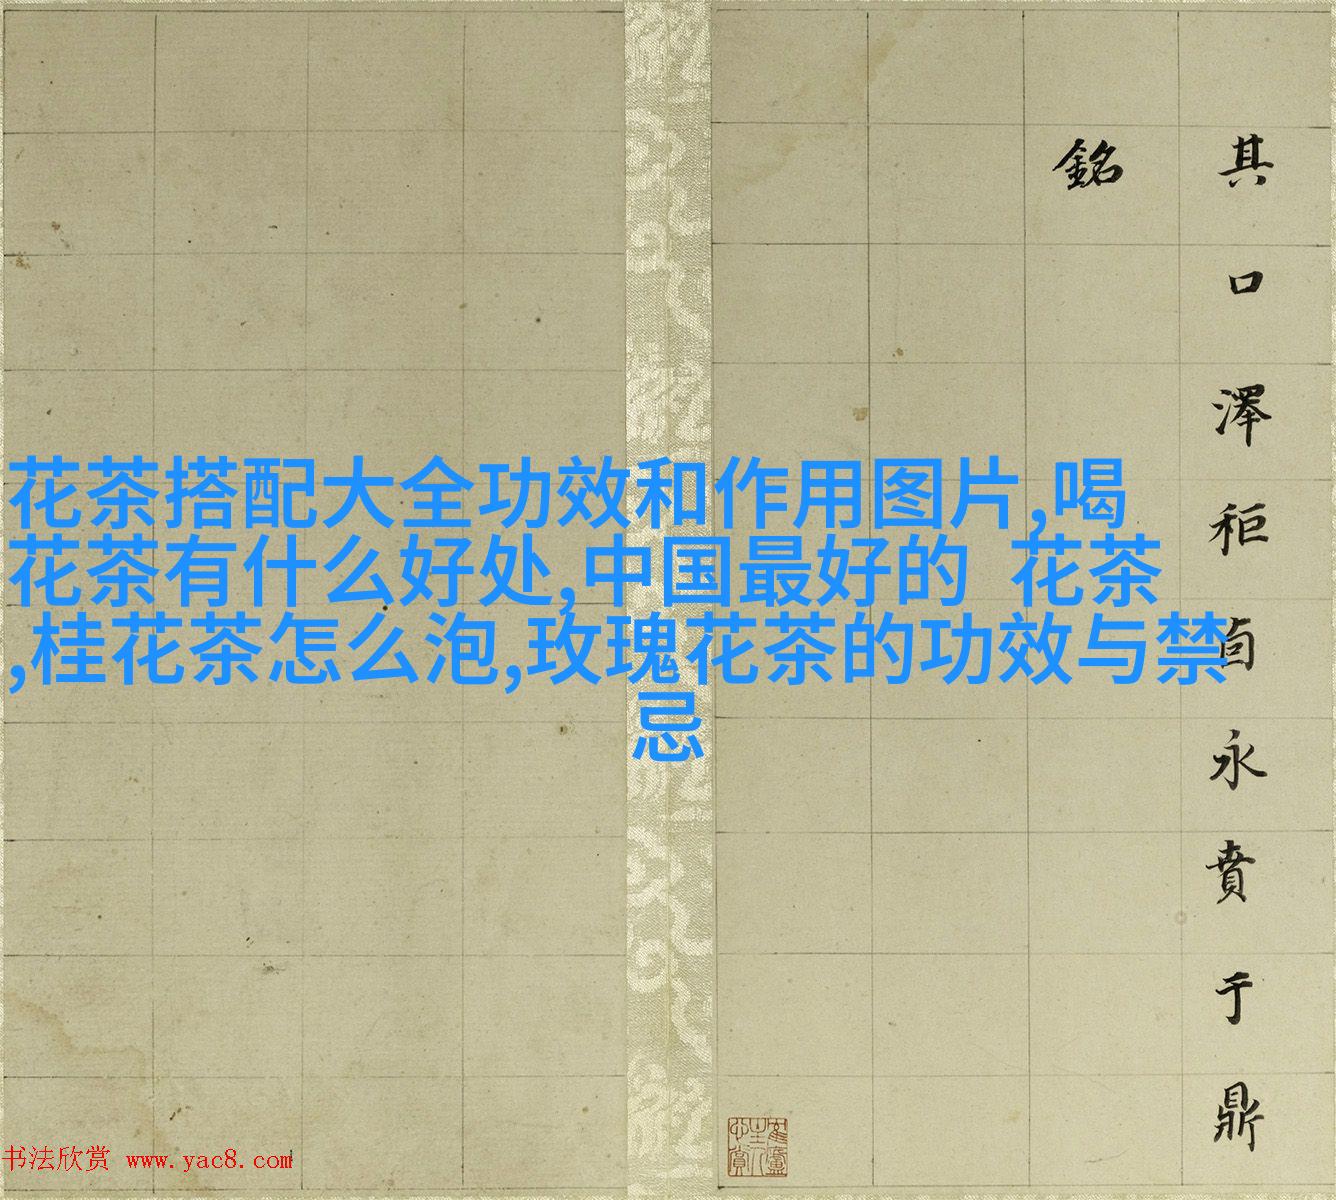 其口澤秬卣永賁于鼎
銘
花茶搭配大全功效和作用图片,喝
花茶有什么好处,中国最好的 花茶
,桂花茶怎么泡,玫瑰花茶的功效与禁
忌
书法欣赏 www.yac8.com